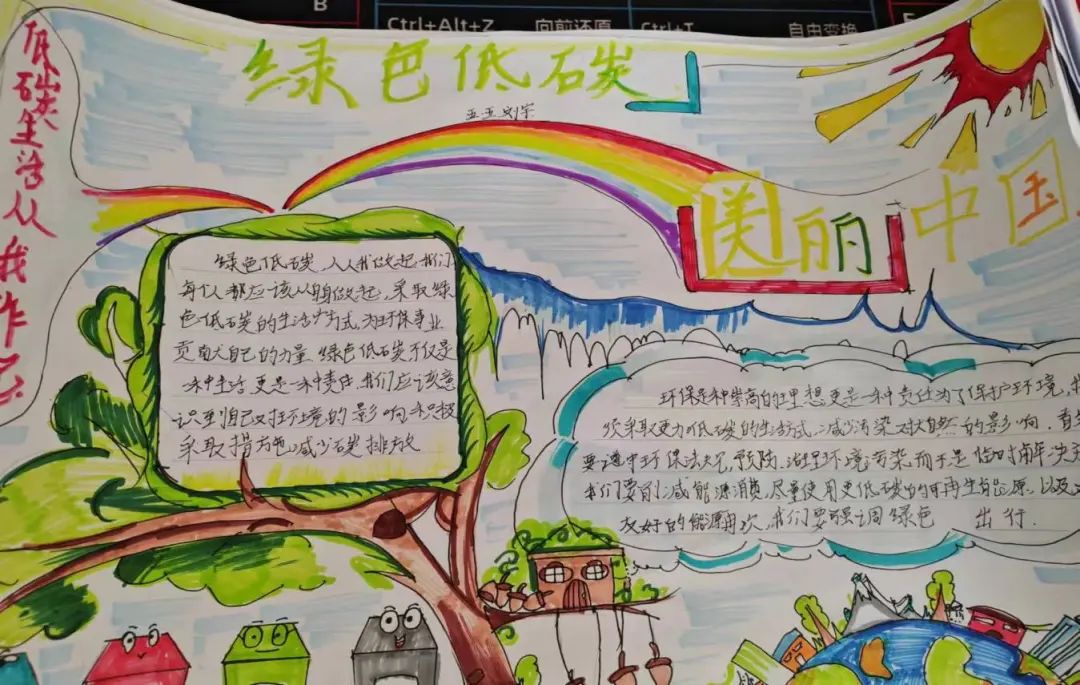 B
Ctrl+Alt+Z 向前还原 Ctrl+T 自由变换
绿色低碳
五五 刘宇
低碳生活从我作
美丽中国
绿色低碳,人人我做起,我们
每个人都应该从自身做起,采取绿
色低碳的生活方式,为环保事业
贡献自己的力量.绿色低碳不仅是
一种生活,更是一种责任,我们应该意
识到自己对环境的影响,积极
采取措施减少碳排放
环保是种崇高的理想更是一种责任为了保护环境,我
须采取更为低碳的生活方式,减少污染对大自然的影响.
要遵守环保法,预防.治理环境污染而于是
我们要削减能源消费,尽量使用更低碳的可再生能源,以及
友好的能源再次,我们要强调绿色 出行.